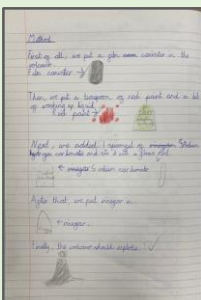 Method
First of all, we put a film canister in the
volcano.
Film canister →
Then, we put a teaspoon of red paint and a bit
of washing up liquid.
Red paint →
Next, we added 1 spoonful of Sodium
hydrogen carbonate and stir it with a
← sodium carbonate
After that, we put vinegar in.
← vinegar.
Finally, the volcano should explode!